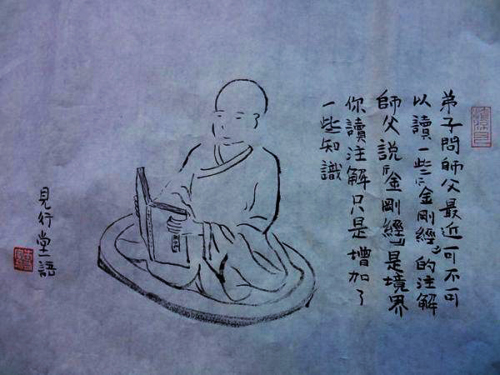 弟子問師父最近可不可
以讀一些「金剛經」的注解
師父說「金剛經」是境界
你讀注解只是增加了
一些知識
見行堂語